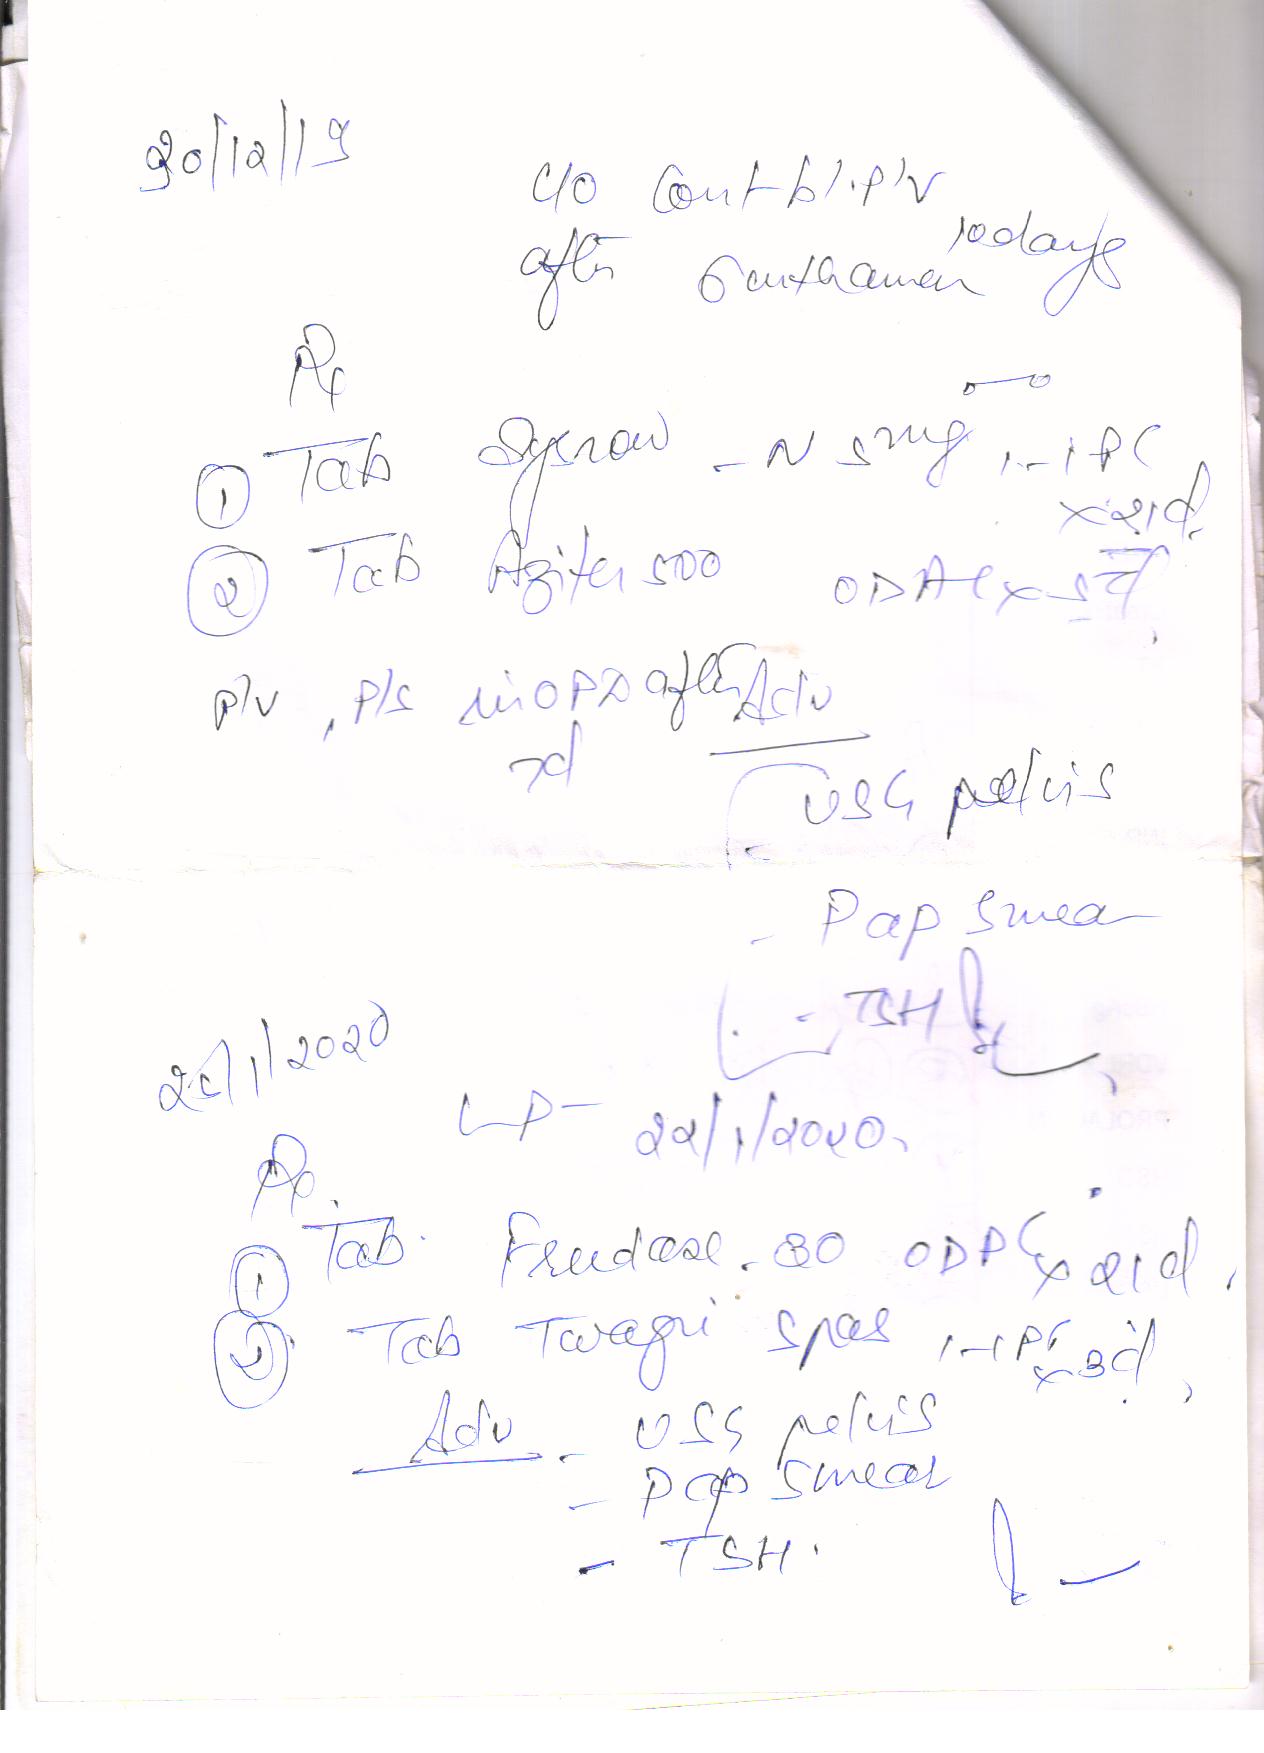 30/12/19
c/o Cont bl. P/V
after 10 days
Rx
① Tab - N 5mg 1-1 PC
x 21d.
② Tab Aziter 500 OD AC x 5d
P/V, P/S in OPD after
7d
Adv
USG pelvis
- Pap Smear
- TSH
/1/2020
LP - 22/1/2020.
Rx
① Tab. 30 OD PC x 21d.
② Tab spas 1-1 PC x 3d,
Adv - USG pelvis
- Pap Smear
- TSH.